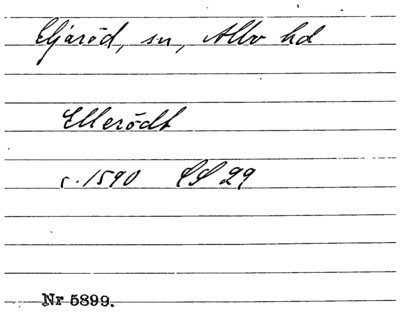 Eljaröd, sn, Albo hd
Ellerödt
c. 1590 LL 29
Nr 5899.